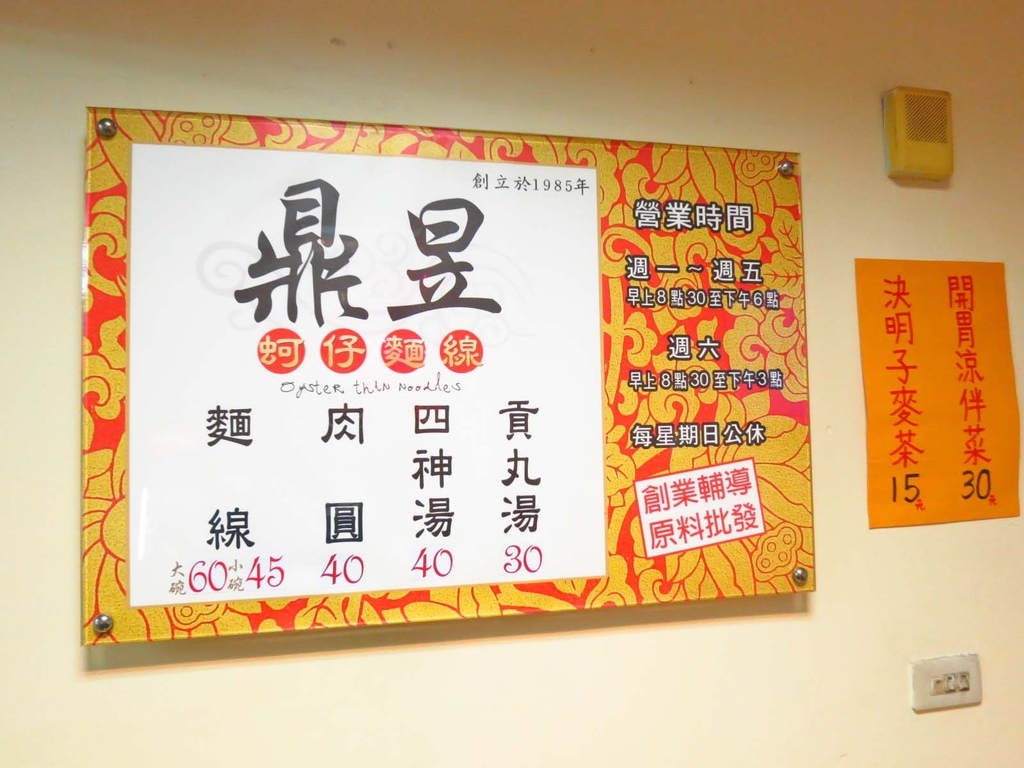 創立於1985年
鼎昱
蚵仔麵線
Oyster thin noodles
麵線
大碗60小碗45
肉圓
40
四神湯
40
貢丸湯
30
營業時間
週一~週五
早上8點30至下午6點
週六
早上8點30至下午3點
每星期日公休
創業輔導
原料批發
開胃涼伴菜30元
決明子麥茶15元